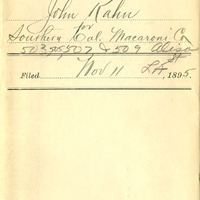 John Kahn
for
Southern Cal. Macaroni Co
503, 505, 507, & 509 Aliso
St
Filed Nov 11 LA, 1895.